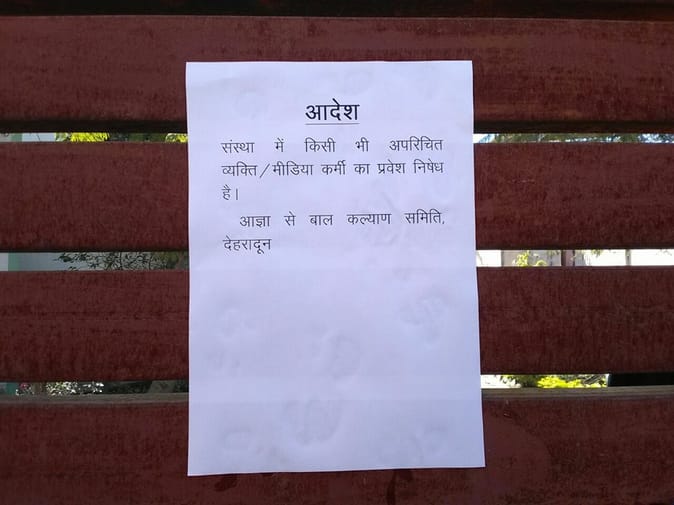 आदेश
संस्था में किसी भी अपरिचित
व्यक्ति/मीडिया कर्मी का प्रवेश निषेध
है।
आज्ञा से बाल कल्याण समिति,
देहरादून